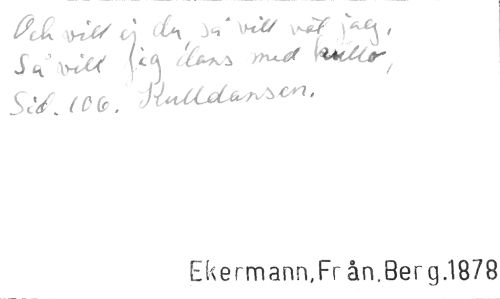 Och vill ej du, så vill väl jag,
Så vill jig dans med kullo,
Sid. 106. Kulldansen.
Ekermann, Från. Berg. 1878